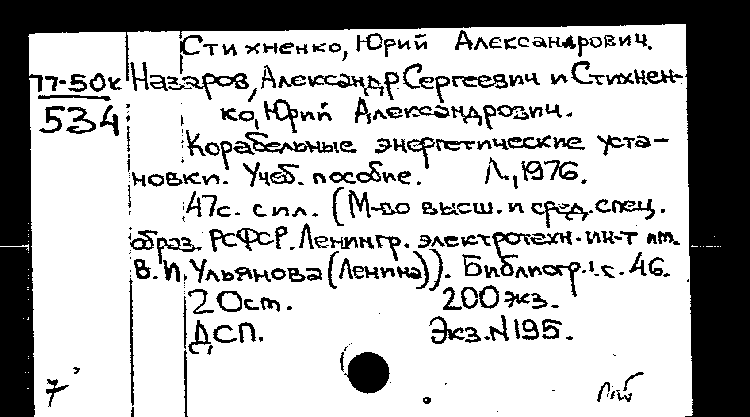 Стихненко, Юрий Александрович.
77-50к Назаров, Александр Сергеевич и Стихнен-
534 ко, Юрий Александрович.
Корабельные энергетические уста-
новки. Учеб. пособие. Л., 1976.
47с. с ил. (М-во высш. и сред. спец.
образ. РСФСР. Ленингр. электротехн. ин-т им.
В. И. Ульянова (Ленина)). Библиогр.: с. 46.
20 ст. 200 экз.
ДСП. Экз. N 195.
7